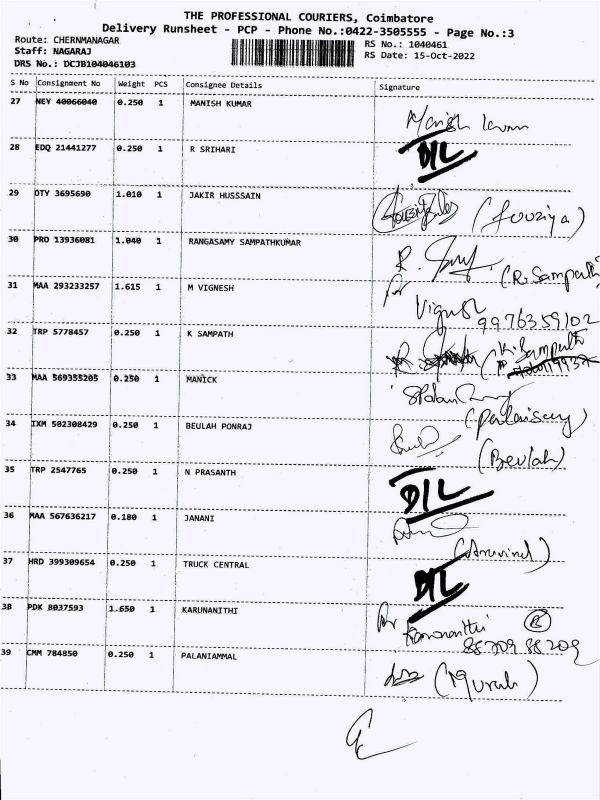 THE PROFESSIONAL COURIERS, Coimbatore
Delivery Runsheet - PCP - Phone No.:0422-3505555 - Page No.:3
Route: CHERNMANAGAR RS No.: 1040461
Staff: NAGARAJ RS Date: 15-Oct-2022
DRS No.: DCJB104046103
S No Consignment No Weight PCS Consignee Details Signature
27 NEY 40066040 0.250 1 MANISH KUMAR Manish
28 EDQ 21441277 0.250 1 R SRIHARI D/L
29 OTY 3695690 1.010 1 JAKIR HUSSSAIN (fouziya)
30 PRO 13936081 1.040 1 RANGASAMY SAMPATHKUMAR R. (R. Sampath)
31 MAA 293233257 1.615 1 M VIGNESH Vignesh
9976359102
32 TRP 5778457 0.250 1 K SAMPATH (K. Sampath
33 MAA 569355205 0.250 1 MANICK
34 IXM 502308429 0.250 1 BEULAH PONRAJ (Beulah)
35 TRP 2547765 0.250 1 N PRASANTH D/L
36 MAA 567636217 0.180 1 JANANI (Aruvind)
37 HRD 399309654 0.250 1 TRUCK CENTRAL D/L
38 PDK 8037593 1.650 1 KARUNANITHI Karunanithi
88709 88209
39 CMM 784850 0.250 1 PALANIAMMAL (Murali)